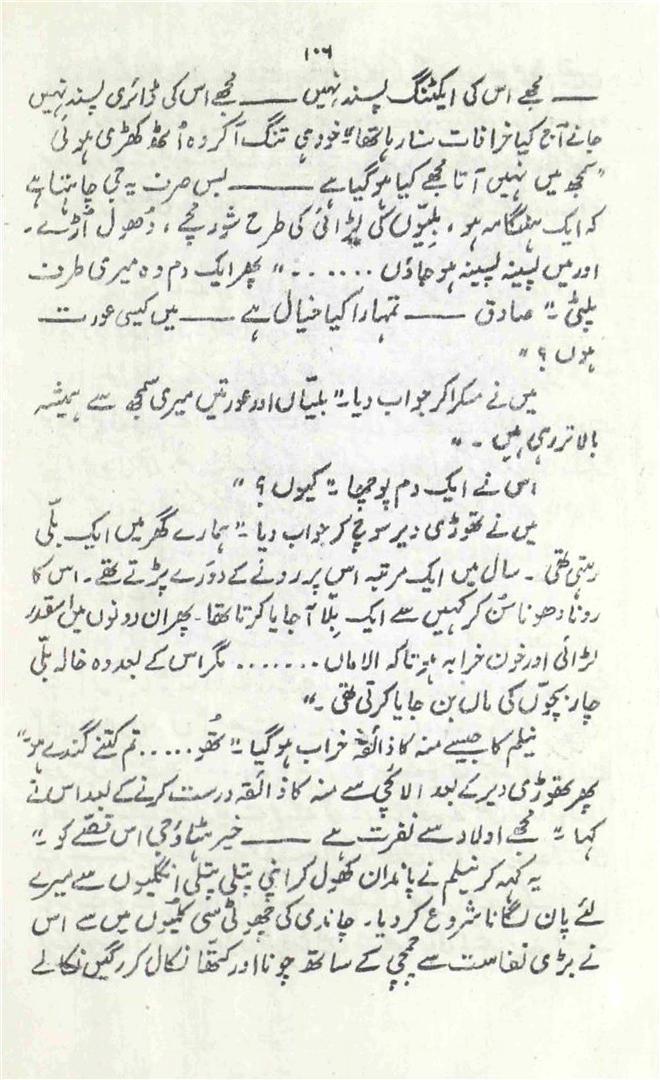 ۱۰۶
—— مجھے اس کی ایکٹنگ پسند نہیں —— مجھے اس کی ڈائری پسند نہیں
جانے آج کیا خرافات سنا رہا تھا" خود ہی تنگ آ کر وہ اُٹھ کھڑی ہوئی
"سمجھ میں نہیں آتا مجھے کیا ہو گیا ہے —— بس صرف یہ جی چاہتا ہے
کہ ایک ہنگامہ ہو، بلیّوں کی لڑائی کی طرح شور مچے، دُھول اُڑے۔
اور میں پسینہ پسینہ ہو جاؤں ......." پھر ایک دم وہ میری طرف
پلٹی "صادق —— تمہارا کیا خیال ہے —— میں کیسی عورت
ہوں؟"
میں نے مسکرا کر جواب دیا۔ "بلیّاں اور عورتیں میری سمجھ سے ہمیشہ
بالاتر رہی ہیں۔"
اس نے ایک دم پوچھا "کیوں؟"
میں نے تھوڑی دیر سوچ کر جواب دیا۔ "ہمارے گھر میں ایک بلّی
رہتی تھی۔ سال میں ایک مرتبہ اس پر رونے کے دورے پڑتے تھے۔ اس کا
رونا دھونا سُن کر کہیں سے ایک بِلّا آ جایا کرتا تھا۔ پھر ان دونوں میں اسقدر
لڑائی اور خون خرابہ ہوتا کہ الاماں ....... مگر اس کے بعد وہ خالہ بلّی
چار بچوّں کی ماں بن جایا کرتی تھی۔"
نیلم کا جیسے منہ کا ذائقہ خراب ہو گیا "تُھو ..... تم کتنے گندے ہو"
پھر تھوڑی دیر کے بعد الائچی سے منہ کا ذائقہ درست کرنے کے بعد اس نے
کہا "مجھے اولاد سے نفرت ہے —— خیر ہٹاؤ جی اس قصّے کو۔"
یہ کہہ کر نیلم نے پاندان کھول کر اپنی پتلی پتلی انگلیوں سے میرے
لئے پان لگانا شروع کر دیا۔ چاندی کی چھوٹی سی کلیوں میں سے اس
نے بڑی نفاست سے چمچی کے ساتھ چونا اور کتھّا نکال کر رگیں نکالے